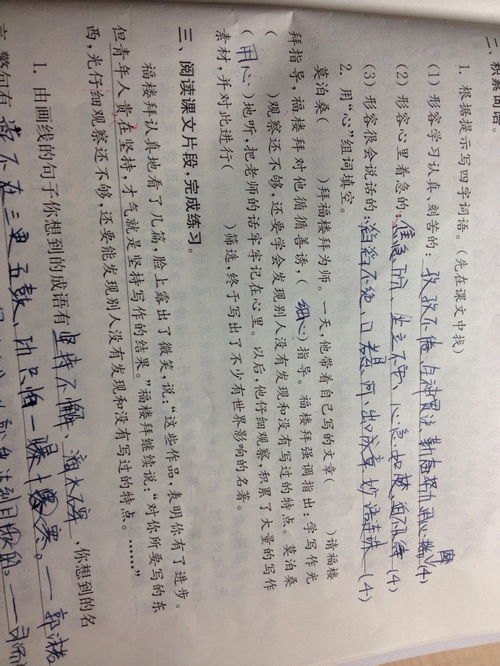 二、积累词语。
1. 根据提示写四字词语。(先在课文中找)
(1) 形容学习认真、刻苦的：孜孜不倦 (4)
(2) 形容心里着急的： 坐立不安、心急如焚 (4)
(3) 形容很会说话的：滔滔不绝、口若悬河、出口成章、妙语连珠 (4)
2. 用“心”组词填空。
莫泊桑( )拜福楼拜为师。一天，他带着自己写的文章( )请福楼
拜指导，福楼拜对他循循善诱，(细心)指导。福楼拜强调指出：学写作光
( )观察还不够，还要学会发现别人没有发现和没有写过的特点。莫泊桑
(用心)地听，把老师的话牢牢记在心里。以后，他仔细观察，积累了大量的写作
素材，并对此进行( )筛选，终于写出了不少有世界影响的名著。
三、阅读课文片段，完成练习。
福楼拜认真地看了几篇，脸上露出了微笑，说：“这些作品，表明你有了进步。
但青年人贵在坚持，才气就是坚持写作的结果。”福楼拜继续说：“对你所要写的东
西，光仔细观察还不够，还要能发现别人没有发现和没有写过的特点。……”
1. 由画线的句子你想到的成语有坚持不懈、 ，你想到的名
言警句有 不在三更五鼓，功只怕一曝十寒。——郭沫